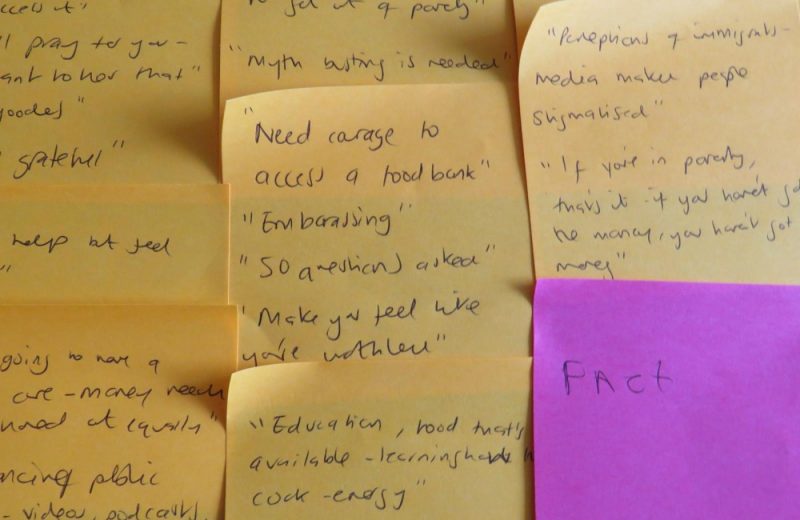 ccess it"
"I pray for you -
want to hear that"
goodes"
grateful"
help but feel
"
going to have a
care - money needs
equally"
public
- videos, podcasts,
to get out of poverty"
"Myth busting is needed"
"Need carage to
access a foodbank"
"Embarassing"
"So questions asked"
"Make you feel like
you're worthless"
"Education, food that's
available - learning how
cook - energy"
"Perceptions of immigrants -
media makes people
stigmatised"
"If you're in poverty,
that's it if you haven't go
no money, you haven't got
money"
PAct